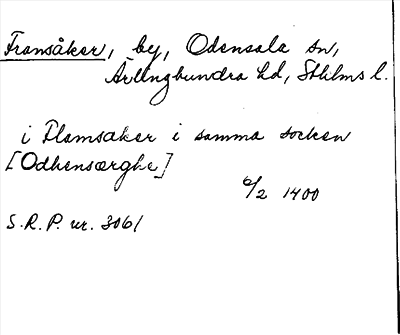 Framsåker, by, Odensala sn,
Ärlingbundra hd, Sthlms l.
i Flamsaker i samma socken
[Odhensarghe]
6/2 1400
S.R.P. nr. 3061